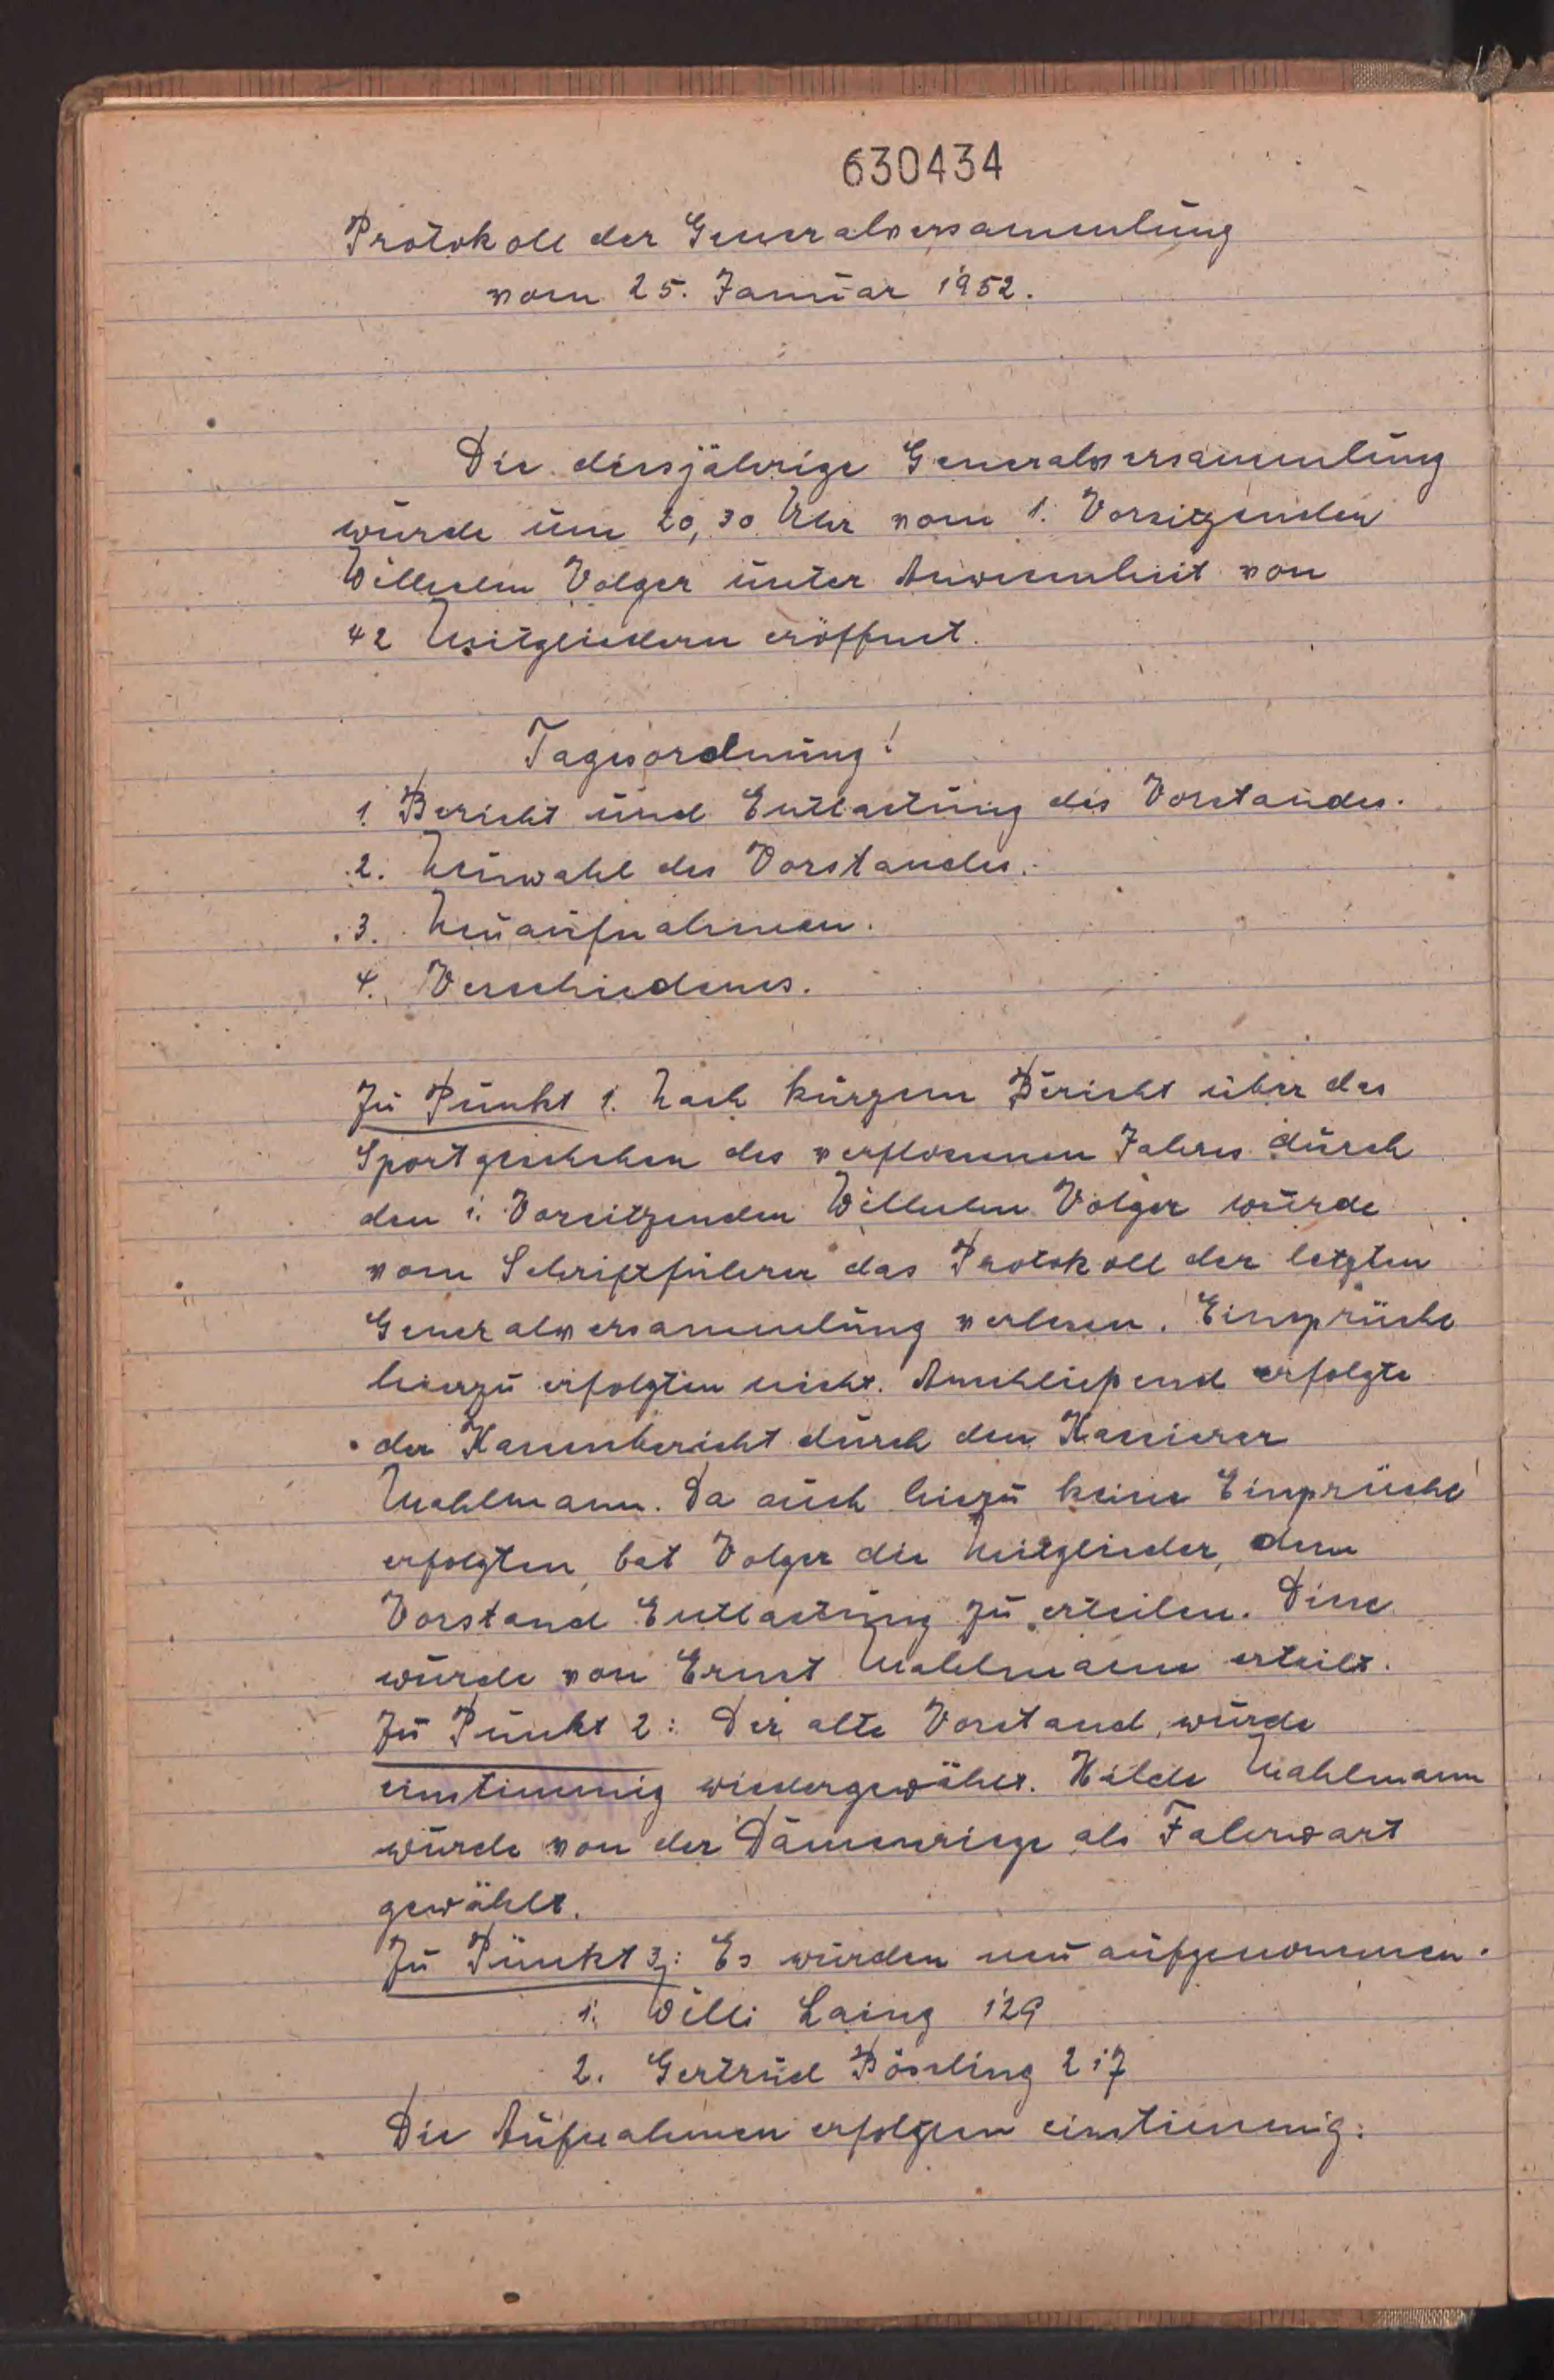 630434
Protokoll der Generalversammlung
vom 25. Januar 1952.
Die diesjährige Generalversammlung
wurde um 20,30 Uhr vom 1. Vorsitzenden
Wilhelm Volger unter Anwesenheit von
42 Mitgliedern eröffnet.
Tagesordnung!
1. Bericht und Entlastung des Vorstandes.
2. Neuwahl des Vorstandes.
3. Neuaufnahmen.
4. Verschiedenes.
Zu Punkt 1. Nach kurzem Bericht über das
Sportgeschehen des verflossenen Jahres durch
den 1. Vorsitzenden Wilhelm Volger wurde
vom Schriftführer das Protokoll der letzten
Generalversammlung verlesen. Einsprüche
hierzu erfolgten nicht. Anschließend erfolgte
der Kassenbericht durch den Kassierer
Mahlmann. Da auch hiezu keine Einsprüche
erfolgten, bat Volger die Mitglieder, dem
Vorstand Entlastung zu erteilen. Diese
wurde von Ernst Mahlmann erteilt.
Zu Punkt 2: Der alte Vorstand wurde
einstimmig wiedergewählt. Hilde Mahlmann
wurde von der Damenriege als Fahrwart
gewählt.
Zu Punkt 3: Es wurden neu aufgenommen.
1. Willi Laing 129
2. Gertrud Bössling 217
Die Aufnahmen erfolgten einstimmig.